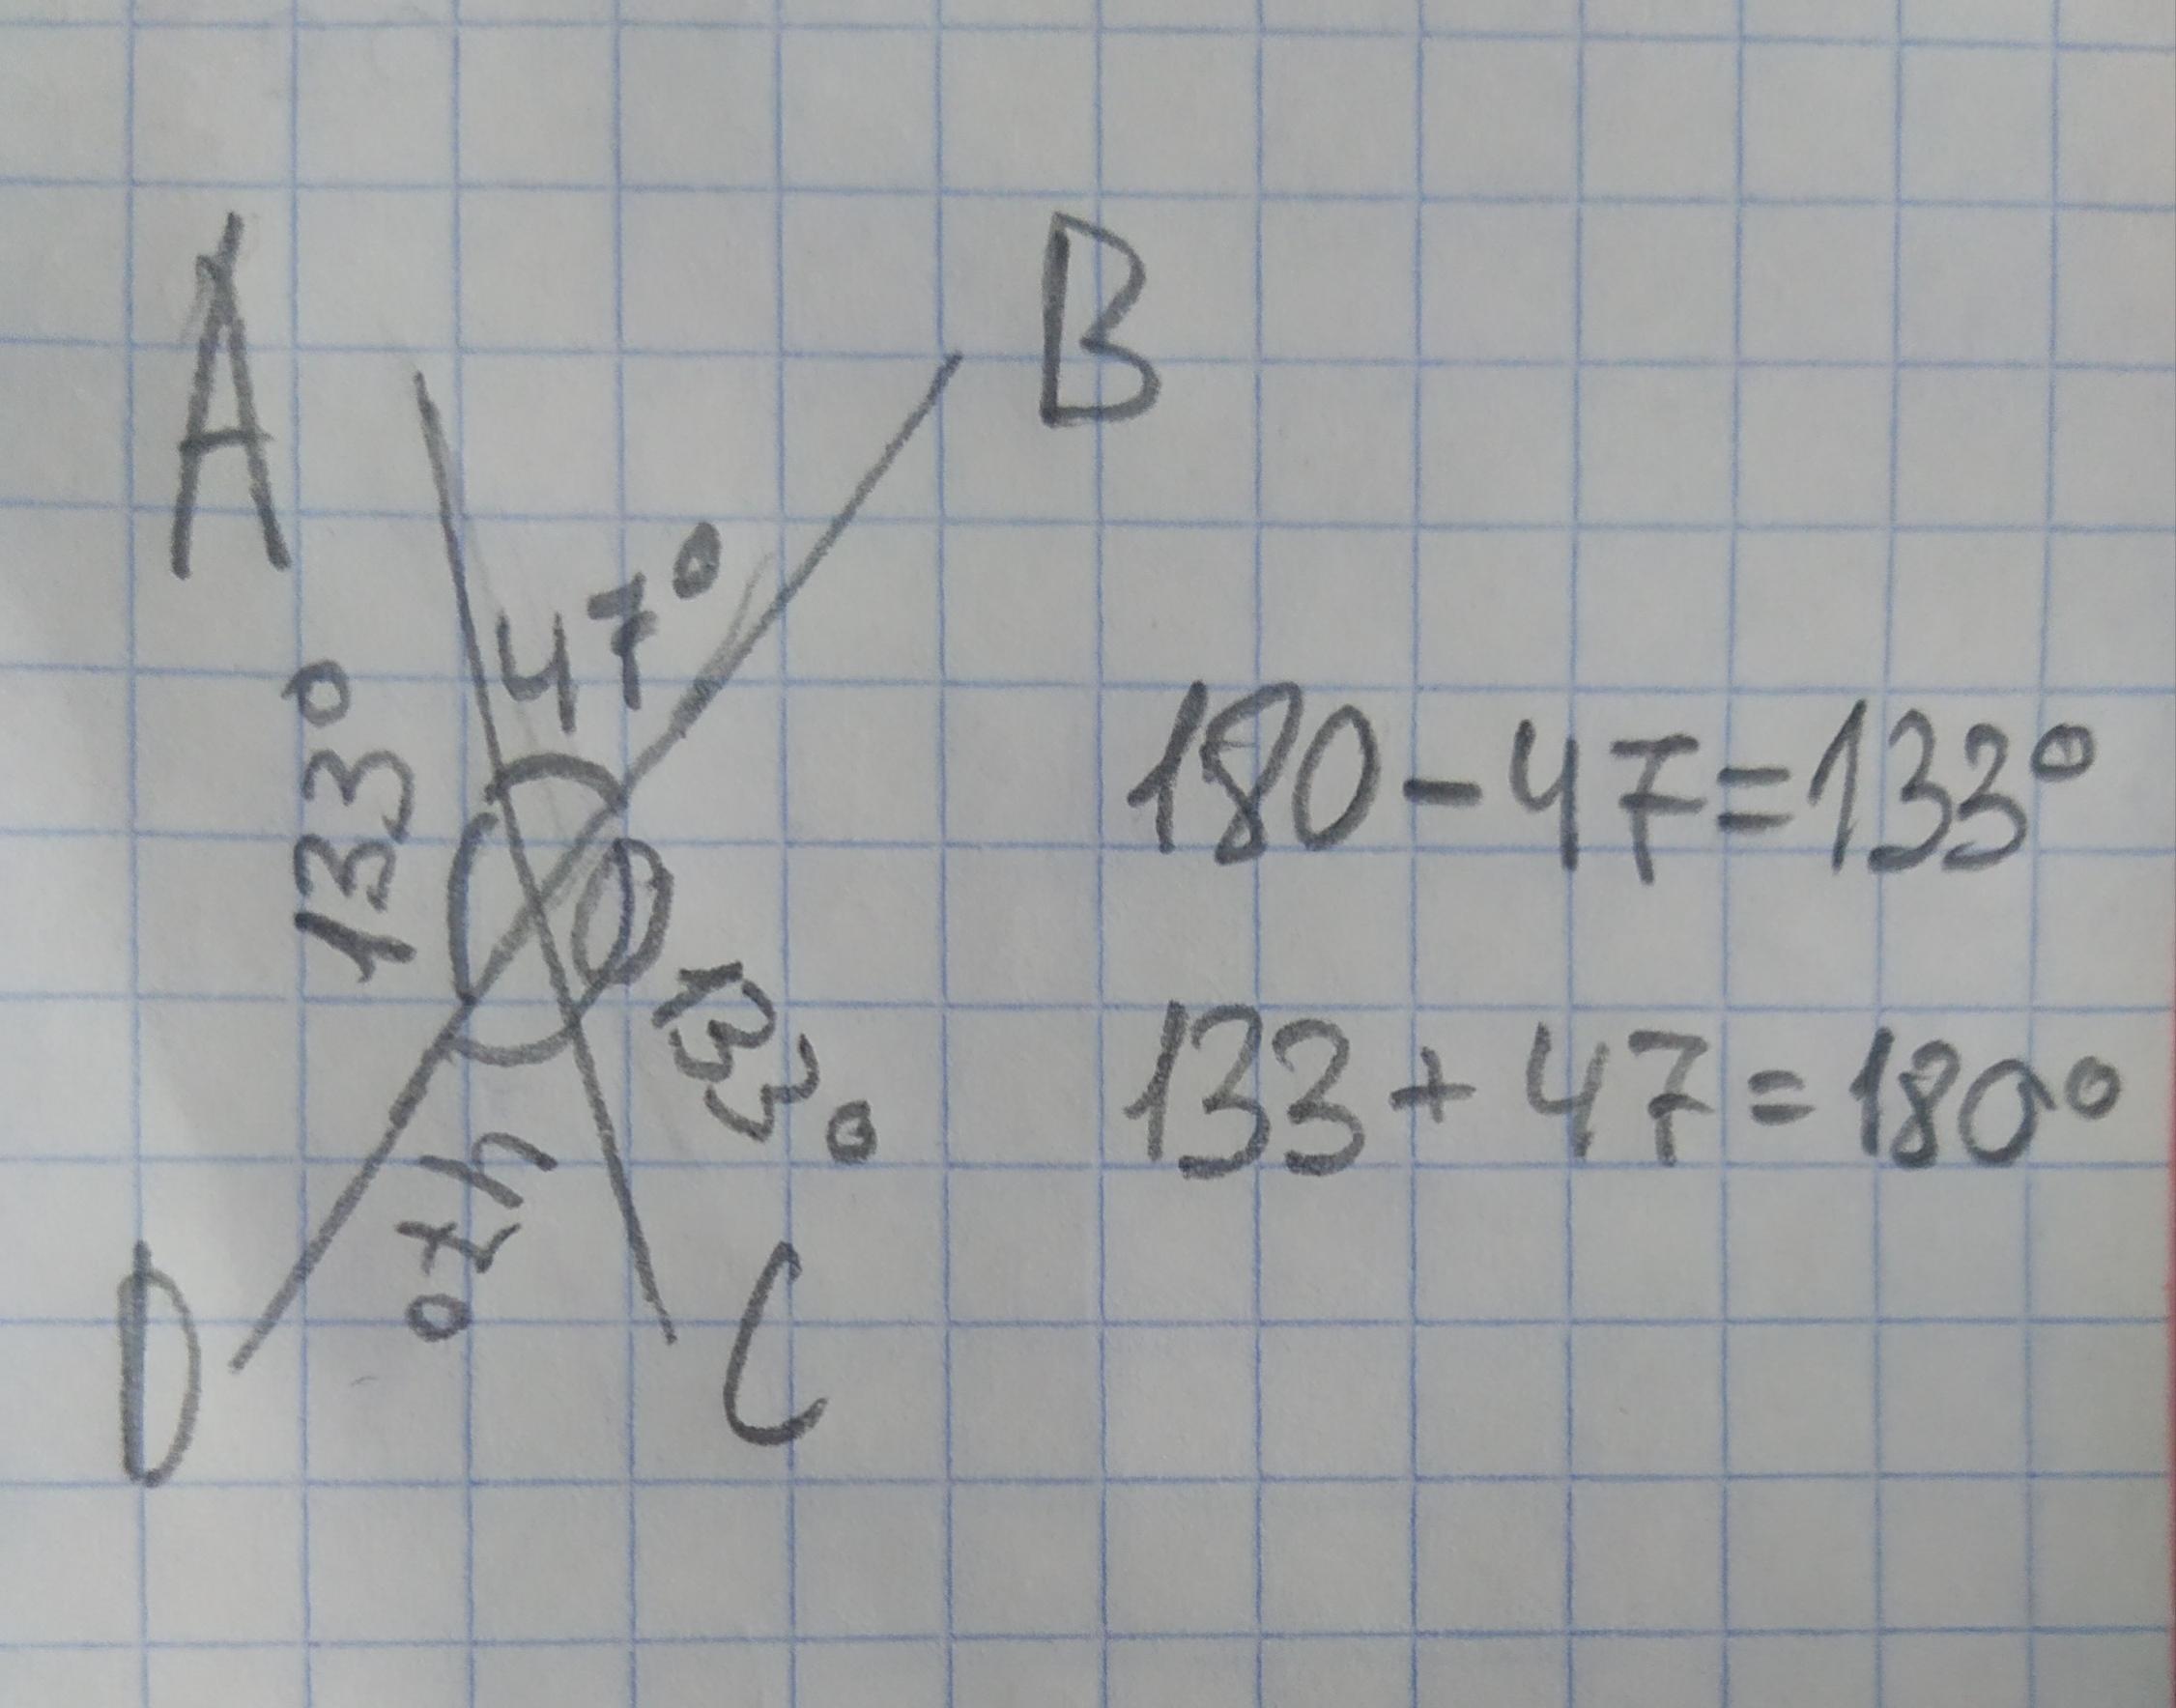 A
B
47°
133°
180-47=133°
133°
133+47=180°
47°
D
C